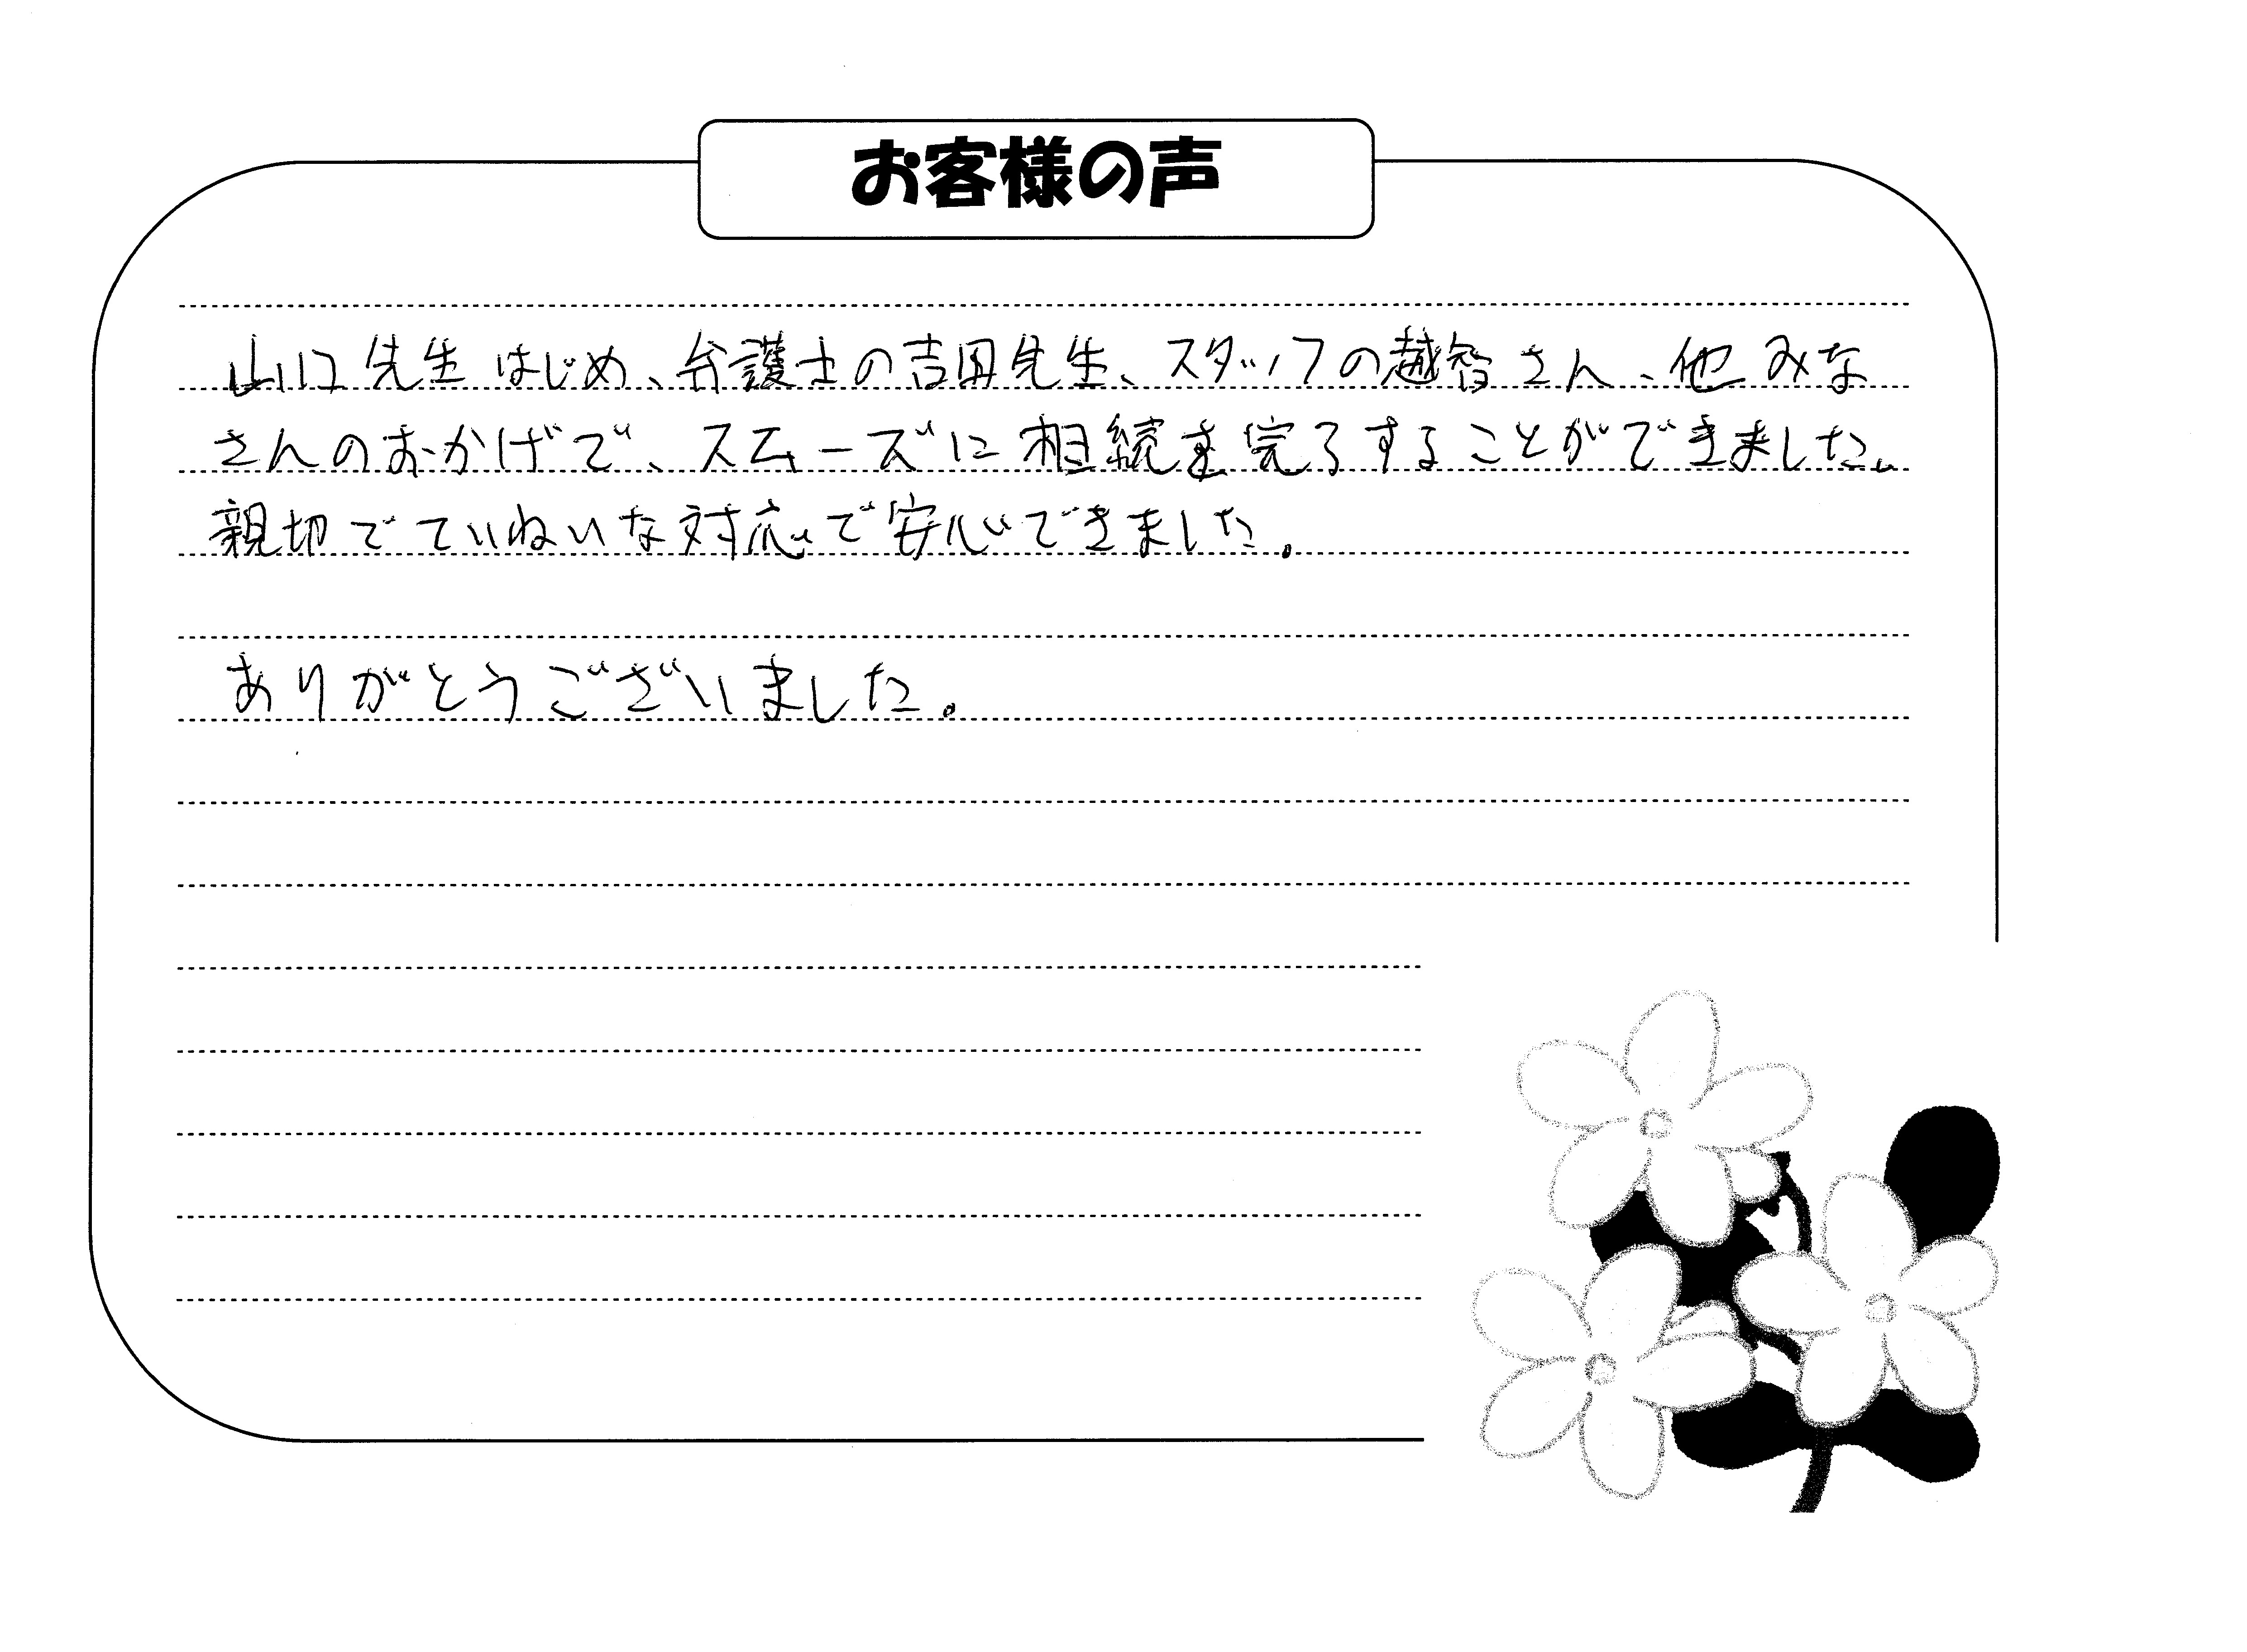 お客様の声
山口先生はじめ、弁護士の吉田先生、スタッフの越智さん、他みな
さんのおかげで、スムーズに相続を完了することができました。
親切でていねいな対応で安心できました。
ありがとうございました。